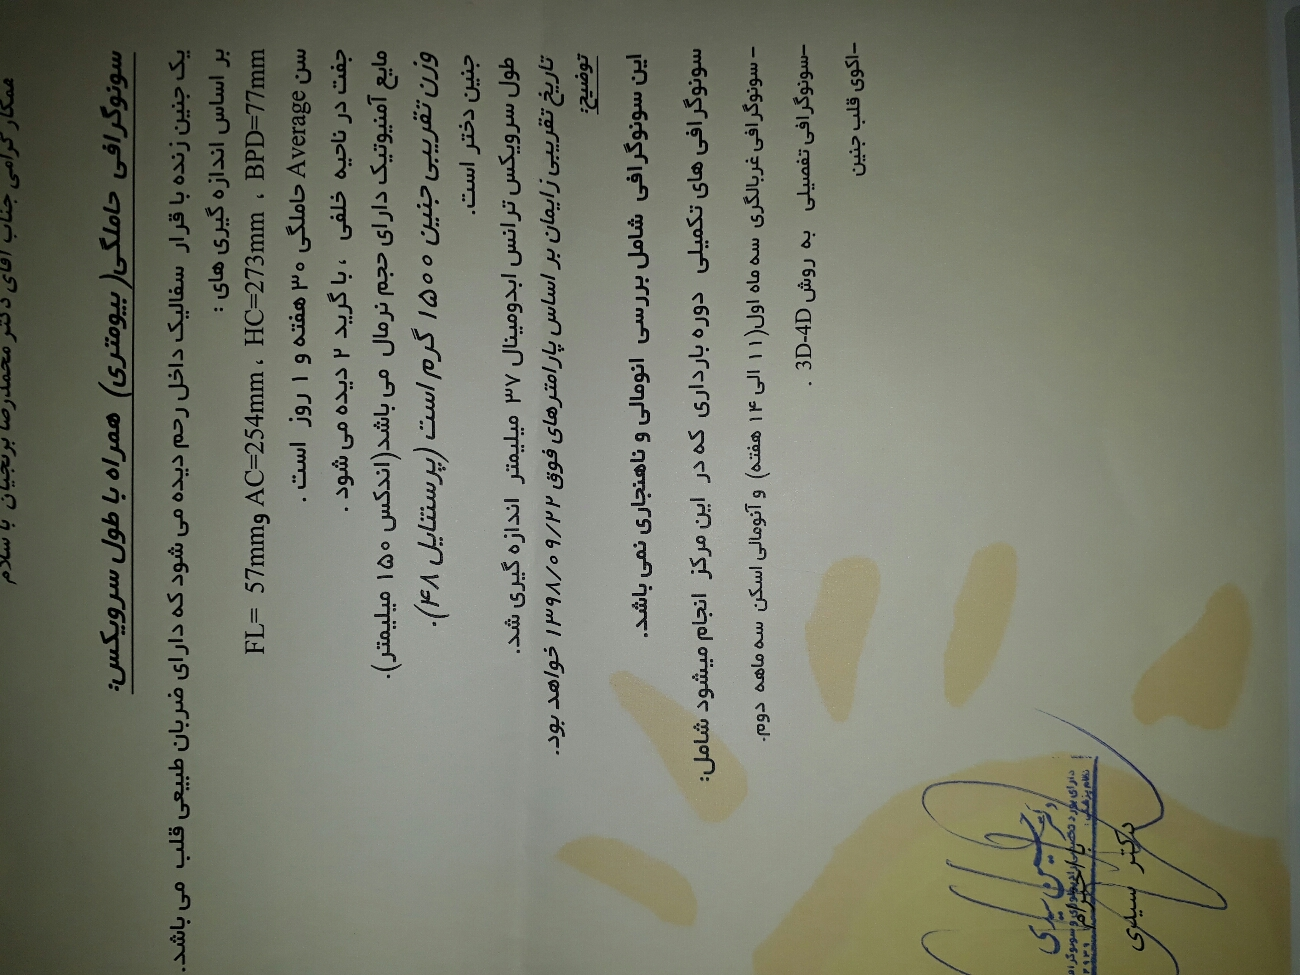 همکار گرامی جناب آقای دکتر محمدرضا برنجیان با سلام
سونوگرافی حاملگی( بیومتری) همراه با طول سرویکس:
یک جنین زنده با قرار سفالیک داخل رحم دیده می شود که دارای ضربان طبیعی قلب می باشد.
بر اساس اندازه گیری های :
FL= 57mmو AC=254mm ، HC=273mm ، BPD=77mm
سن Average حاملگی ۳۰ هفته و ۱ روز است .
جفت در ناحیه خلفی ، با گرید ۲ دیده می شود .
مایع آمنیوتیک دارای حجم نرمال می باشد(اندکس ۱۵۰ میلیمتر).
وزن تقریبی جنین ۱۵۰۰ گرم است (پرسنتایل ۴۸).
جنین دختر است.
طول سرویکس ترانس ابدومینال ۳۷ میلیمتر اندازه گیری شد.
تاریخ تقریبی زایمان بر اساس پارامترهای فوق ۱۳۹۸/۰۹/۲۲ خواهد بود.
توضیح:
این سونوگرافی شامل بررسی انومالی و ناهنجاری نمی باشد.
سونوگرافی های تکمیلی دوره بارداری که در این مرکز انجام میشود شامل:
- سونوگرافی غربالگری سه ماه اول(۱۱ الی ۱۴ هفته) و آنومالی اسکن سه ماهه دوم.
-سونوگرافی تفصیلی به روش 3D-4D .
-اکوی قلب جنین
با احترام
دکتر سیدی